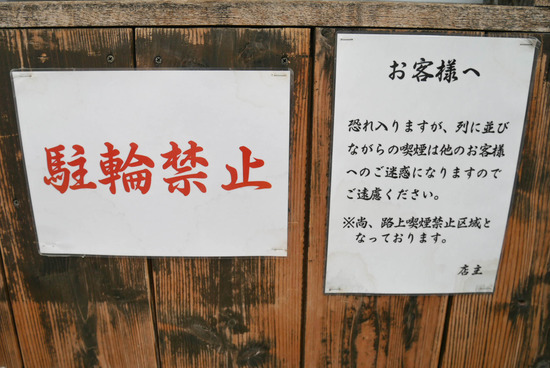 駐輪禁止
お客様へ
恐れ入りますが、列に並び
ながらの喫煙は他のお客様
へのご迷惑になりますので
ご遠慮ください。
※尚、路上喫煙禁止区域と
なっております。
店主